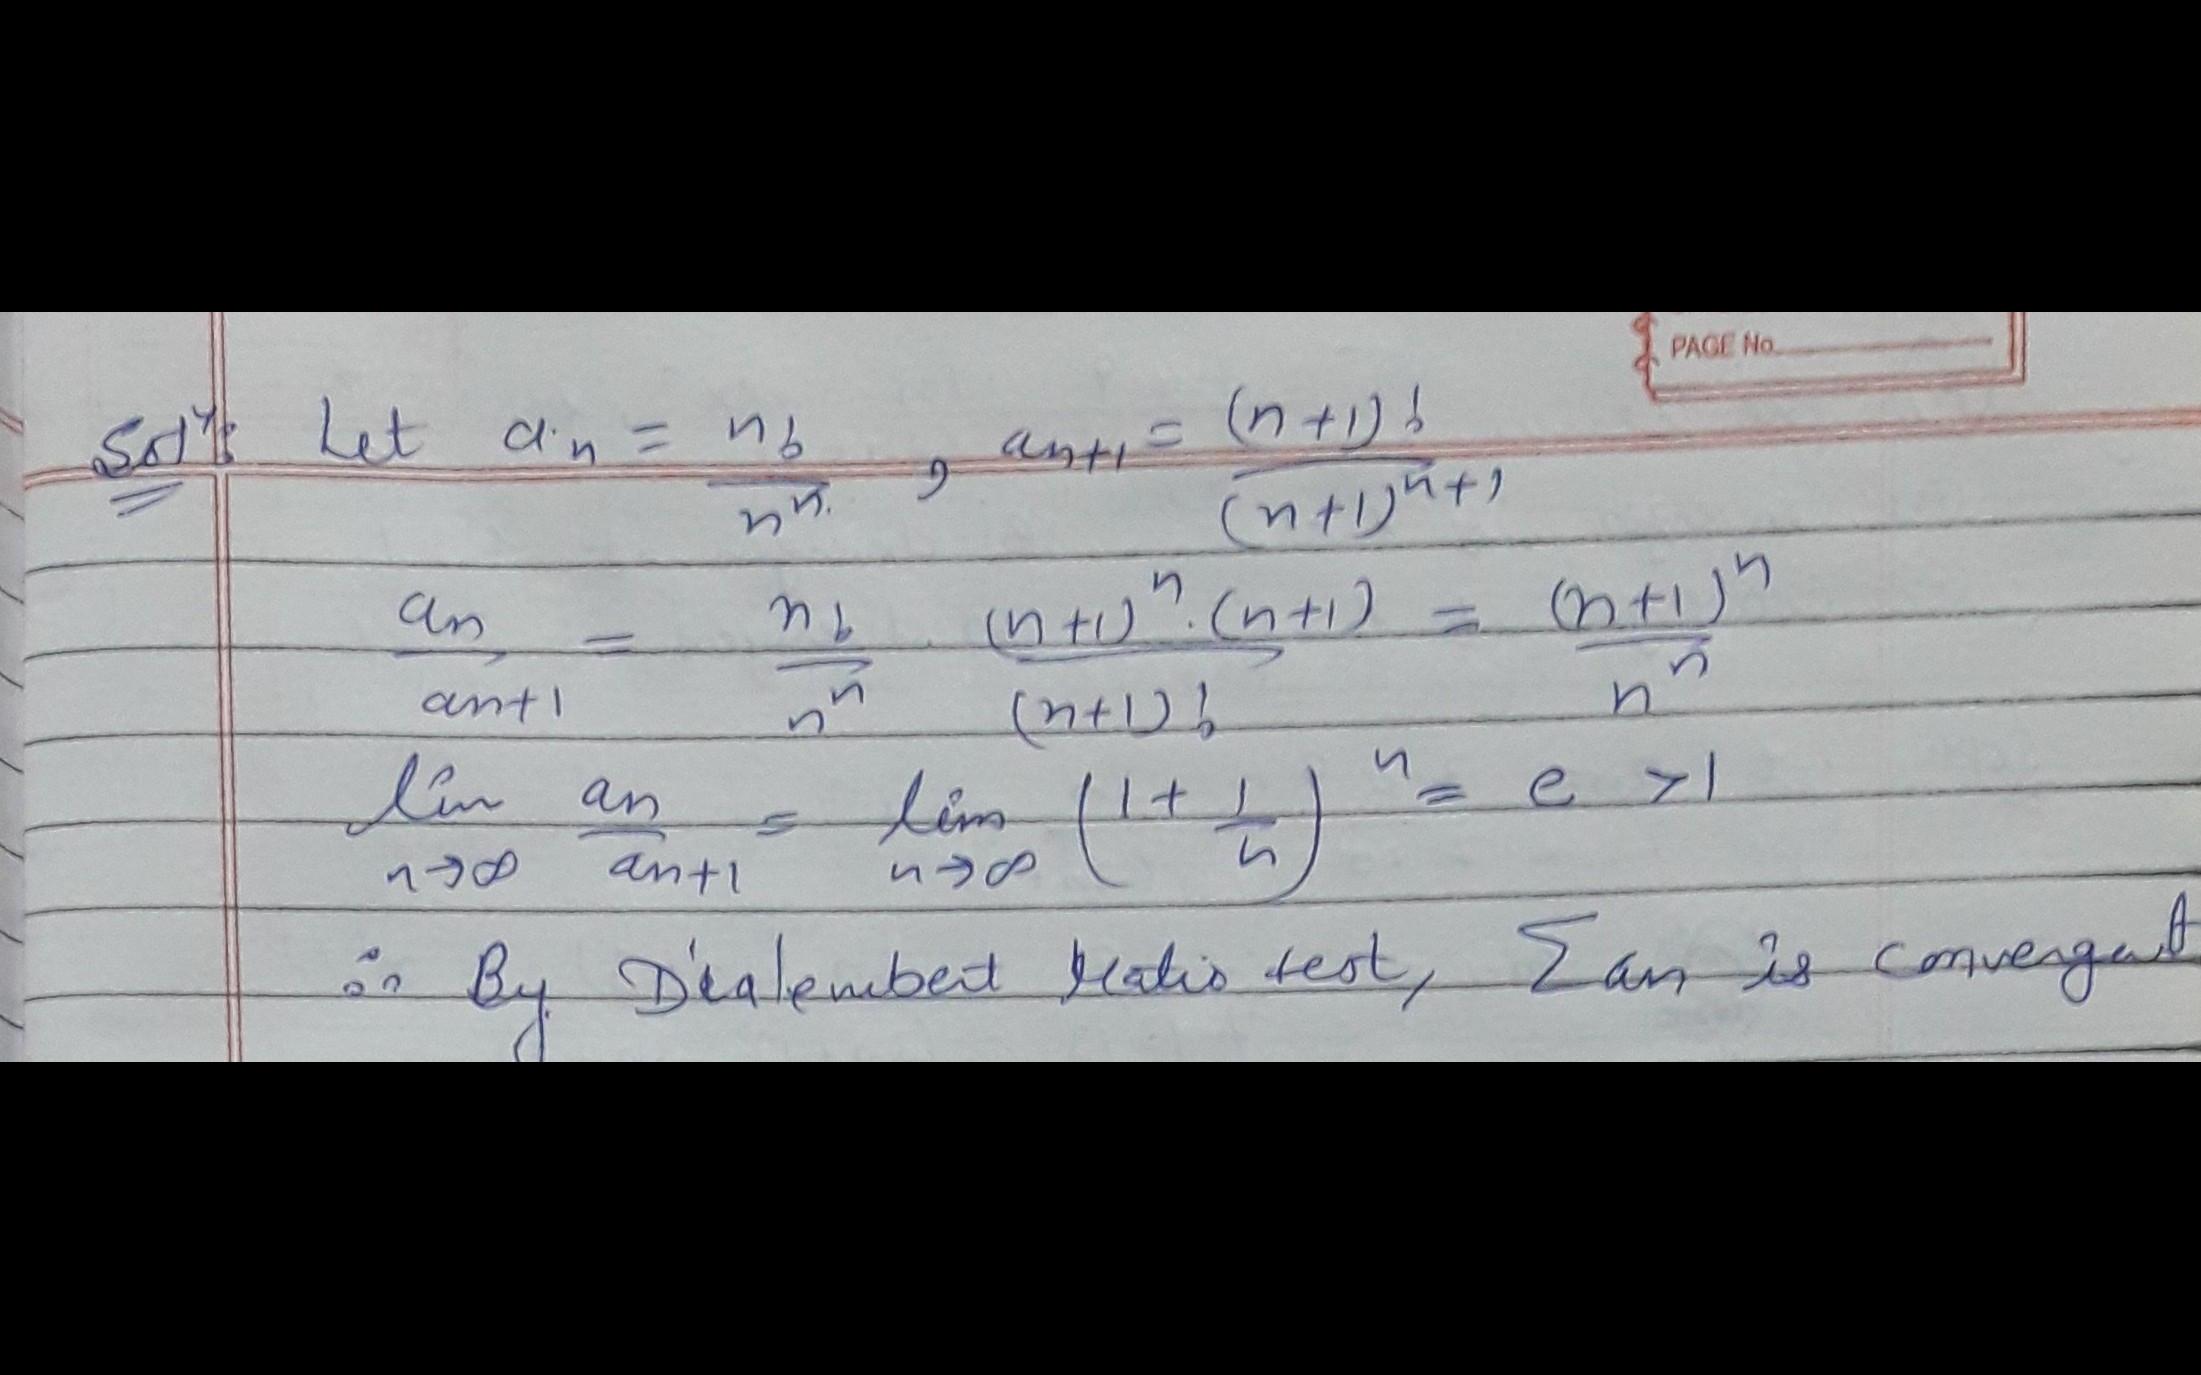 PAGE No.
Solⁿ: Let aₙ = n! / nⁿ , aₙ₊₁ = (n+1)! / (n+1)ⁿ⁺¹
aₙ / aₙ₊₁ = n! / nⁿ · (n+1)ⁿ·(n+1) / (n+1)! = (n+1)ⁿ / nⁿ
lim n→∞ aₙ / aₙ₊₁ = lim n→∞ (1 + 1/n)ⁿ = e > 1
∴ By D'ealembert Ratio test, Σ aₙ is convergent